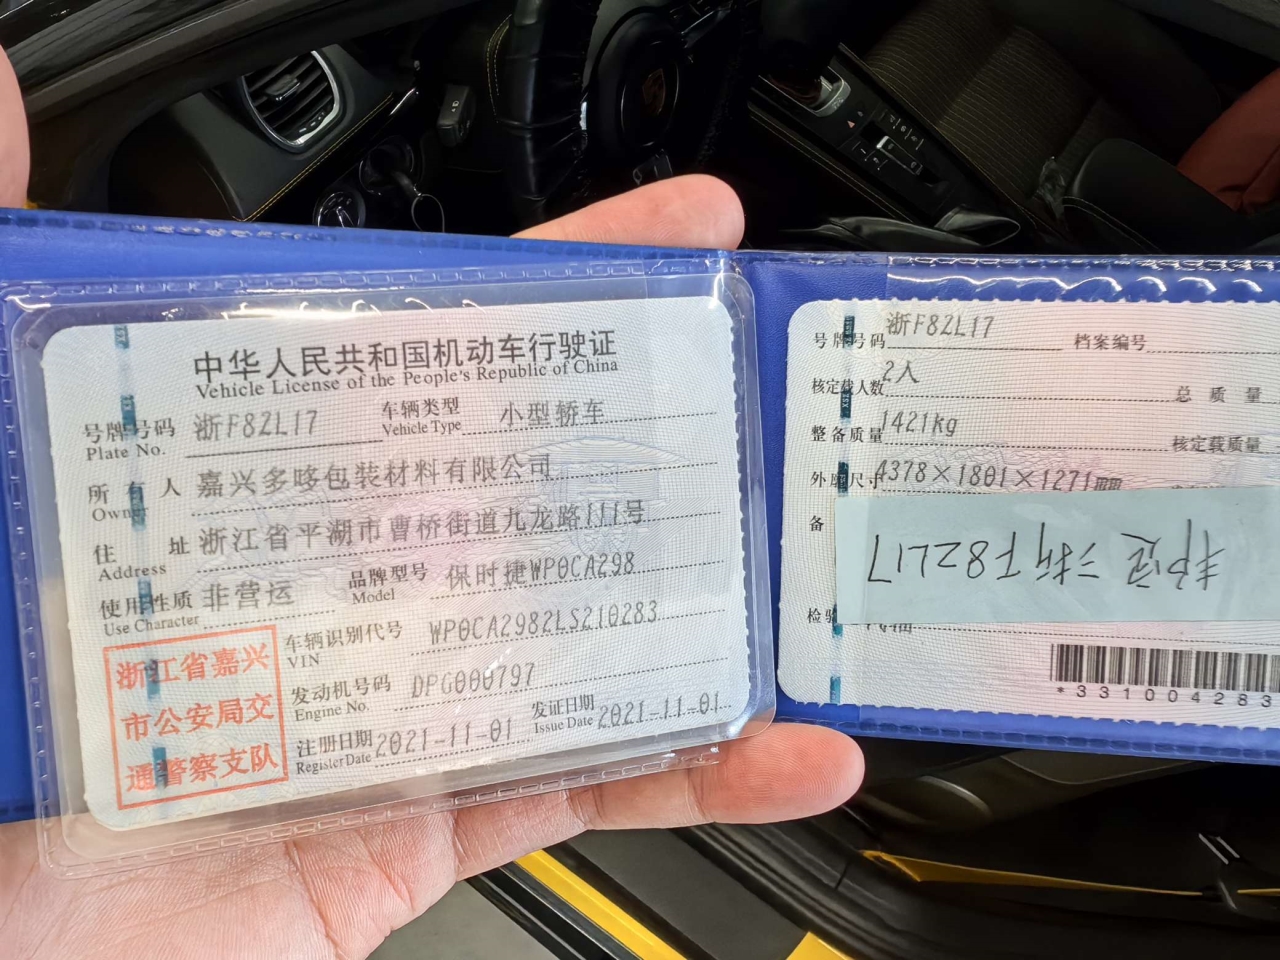 中华人民共和国机动车行驶证
Vehicle License of the People's Republic of China
号牌号码 浙F82L17 车辆类型 小型轿车
Plate No. Vehicle Type
所有人 嘉兴多哆包装材料有限公司
Owner
住址 浙江省平湖市曹桥街道九龙路111号
Address
使用性质 非营运 品牌型号 保时捷WP0CA298
Use Character Model
车辆识别代号 WP0CA2982LS210283
VIN
发动机号码 DPG000797
Engine No.
注册日期 2021-11-01 发证日期 2021-11-01
Register Date Issue Date
浙江省嘉兴
市公安局交
通警察支队
号牌号码 浙F82L17 档案编号
核定载人数 2人 总质量
整备质量 1421kg 核定载质量
外廓尺寸 4378×1801×1271mm
备
浙F82L17
检验
*331004283